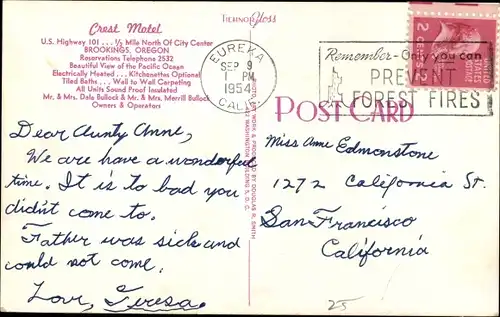 Crest Motel
U.S. Highway 101 . . . ½ Mile North Of City Center
BROOKINGS, OREGON
Reservations Telephone 2532
Beautiful View of the Pacific Ocean
Electrically Heated . . . Kitchenettes Optional
Tiled Baths . . . Wall to Wall Carpeting
All Units Sound Proof Insulated
Mr. & Mrs. Dale Bullock & Mr. & Mrs. Merrill Bullock
Owners & Operators
EUREKA
SEP 9
1 PM
1954
CALIF.
Remember - Only you can
PREVENT
FOREST FIRES
POST CARD
Dear Aunty Anne,
We are have a wonderful
time. It is to bad you
didn't come to.
Father was sick and
could not come.
Love, Teresa
Miss Anne Edmonstone
1272 California St.
San Francisco
California
25